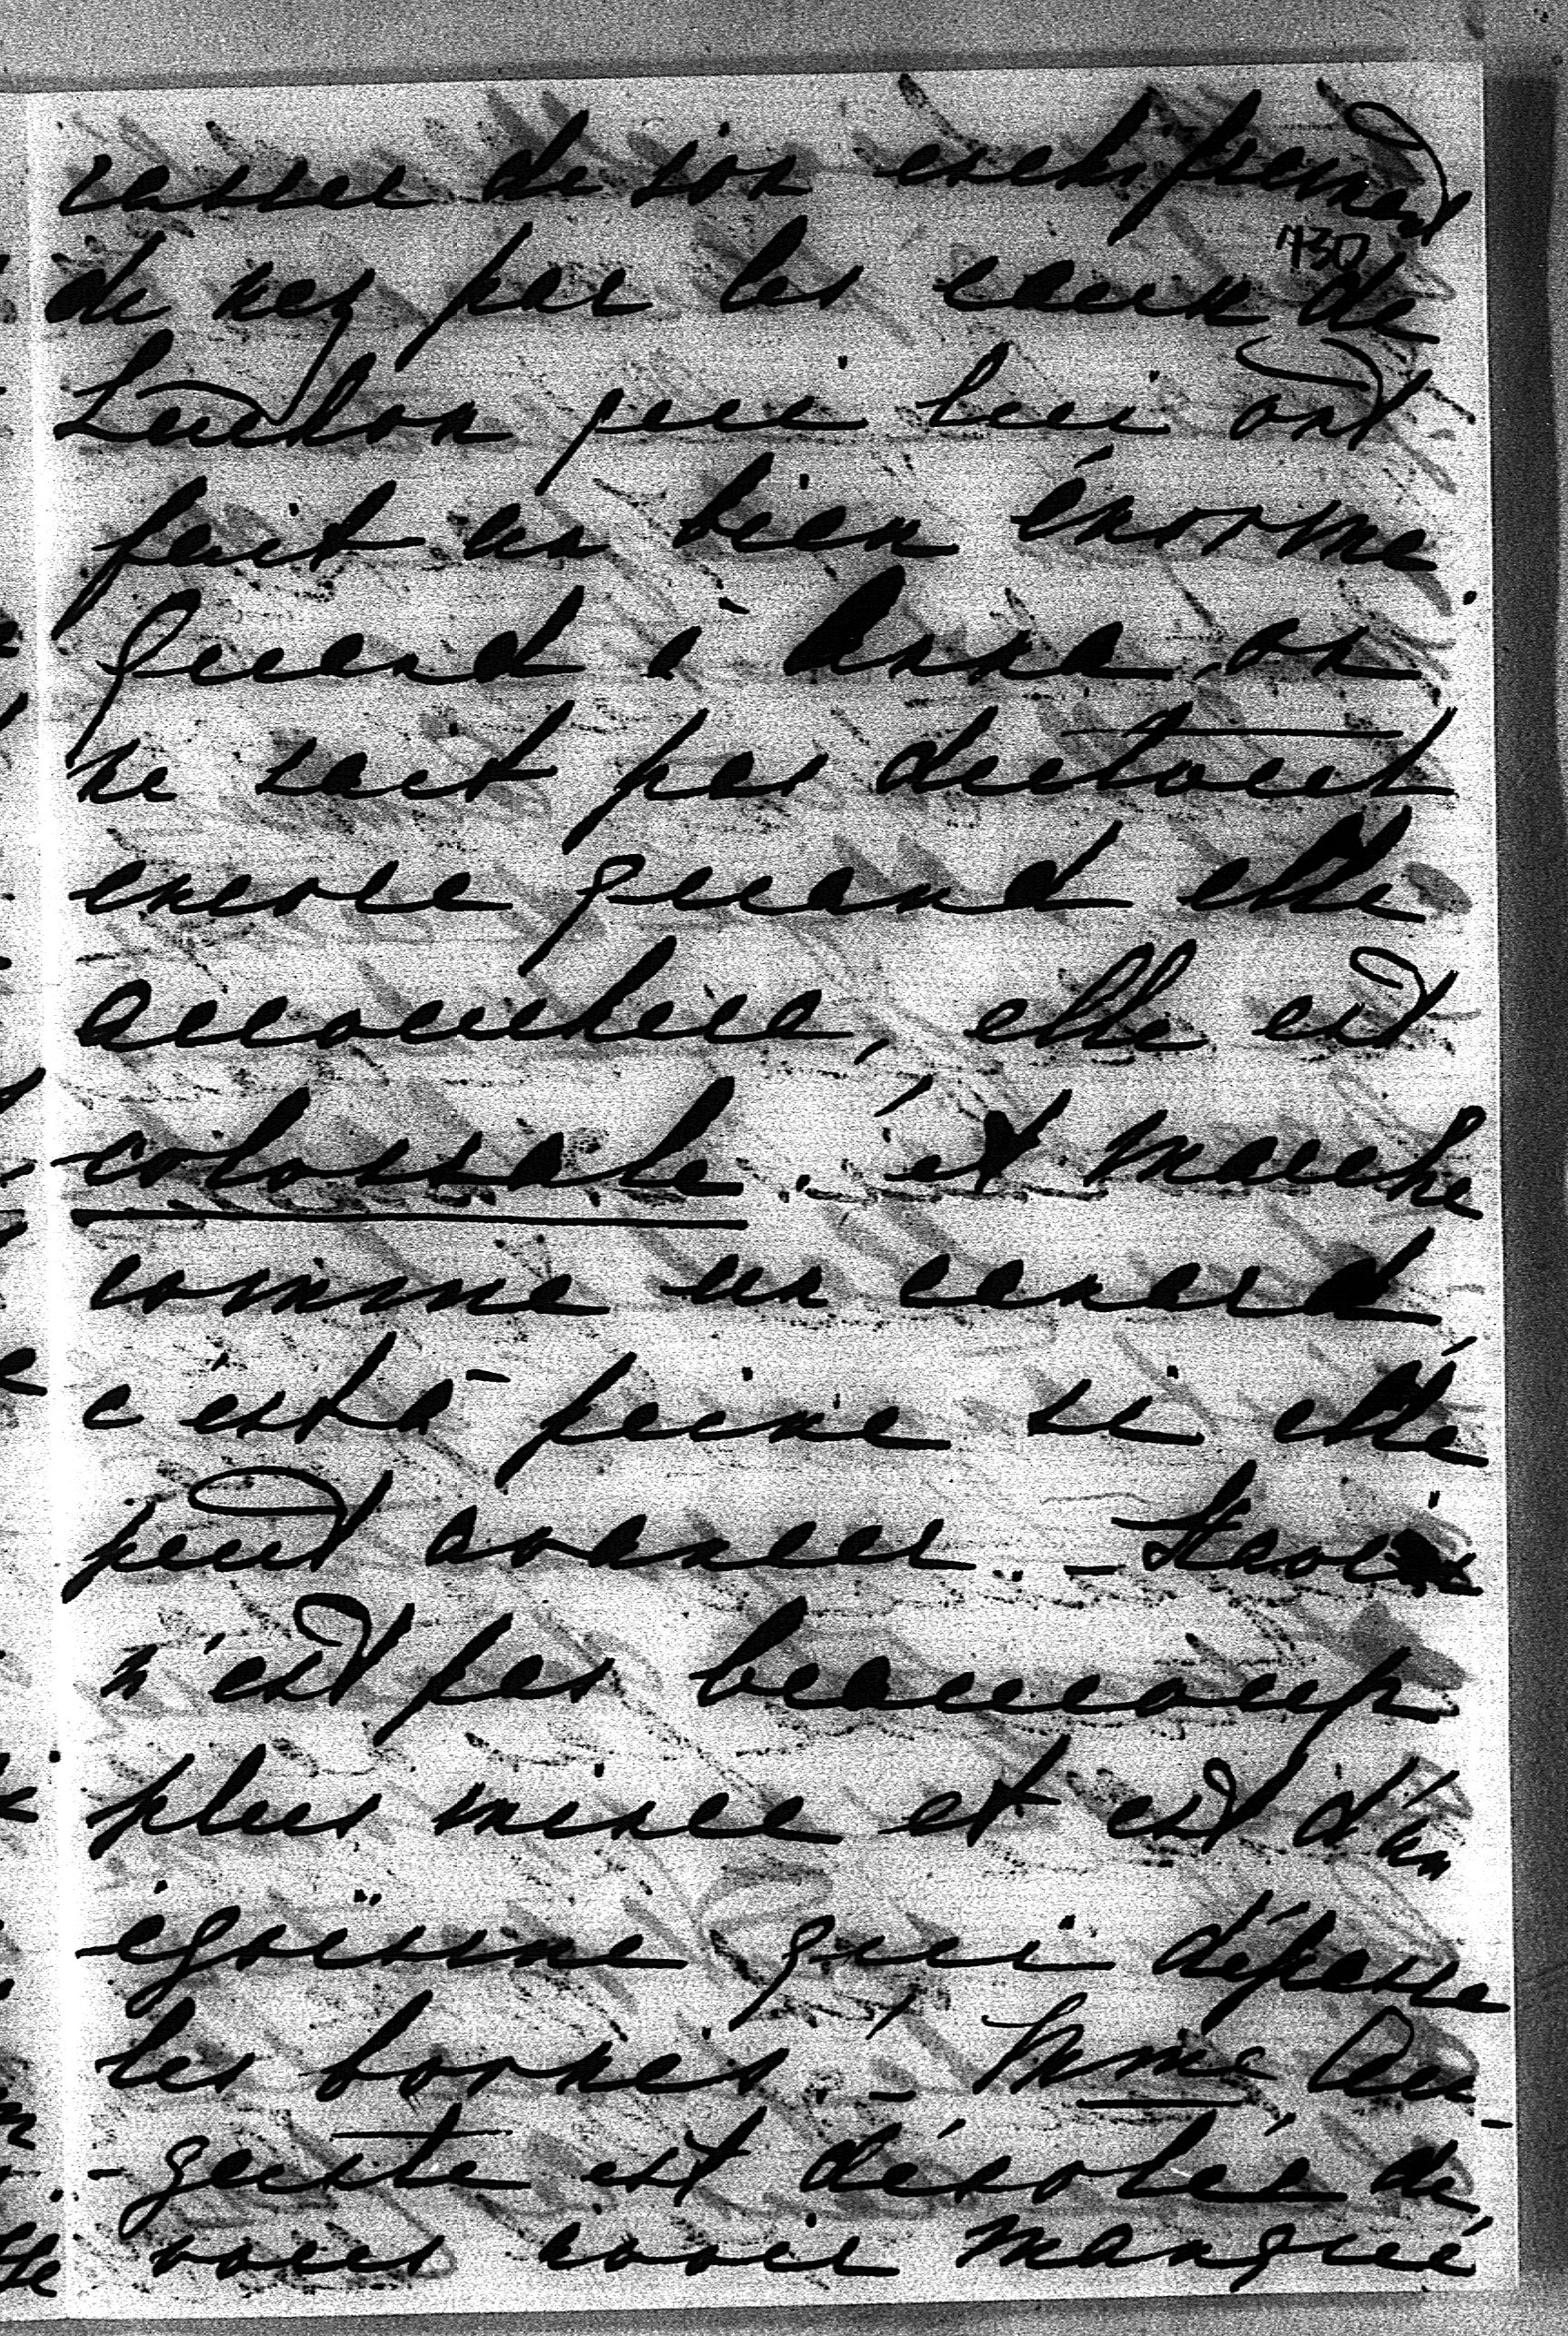 rasser de son enchifrement
730
de nez par les eaux de
Luchon qui lui ont
fait un bien énorme.
Quand à Anna, on
ne sait pas du tout
encore quand elle
accouchera, elle est
colossale. et marche
comme un canard,
c'est à peine si elle
peut avancer. -
n'est pas beaucoup
plus mince et est d'un
égoïsme qui dépasse
les bornes. - Mme Au-
-guste est désolée de
vous avoir manqué